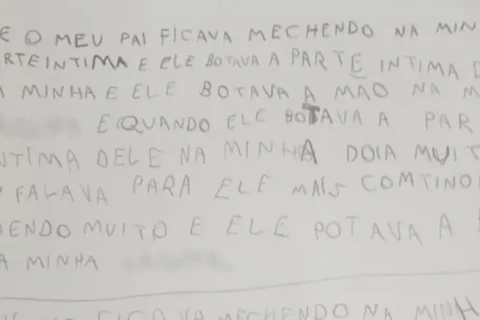 E O MEU PAI FICAVA MECHENDO NA MIN
RTEINTIMA E ELE BOTAVA A PARTE INTIMA D
A MINHA E ELE BOTAVA A MAO NA M
E QUANDO ELE BOTAVA A PAR
NTIMA DELE NA MINHA DOIA MUIT
FALAVA PARA ELE MAIS COMTINO
DENDO MUITO E ELE POTAVA A
A MINHA
FICAVA MECHENDO NA MINH